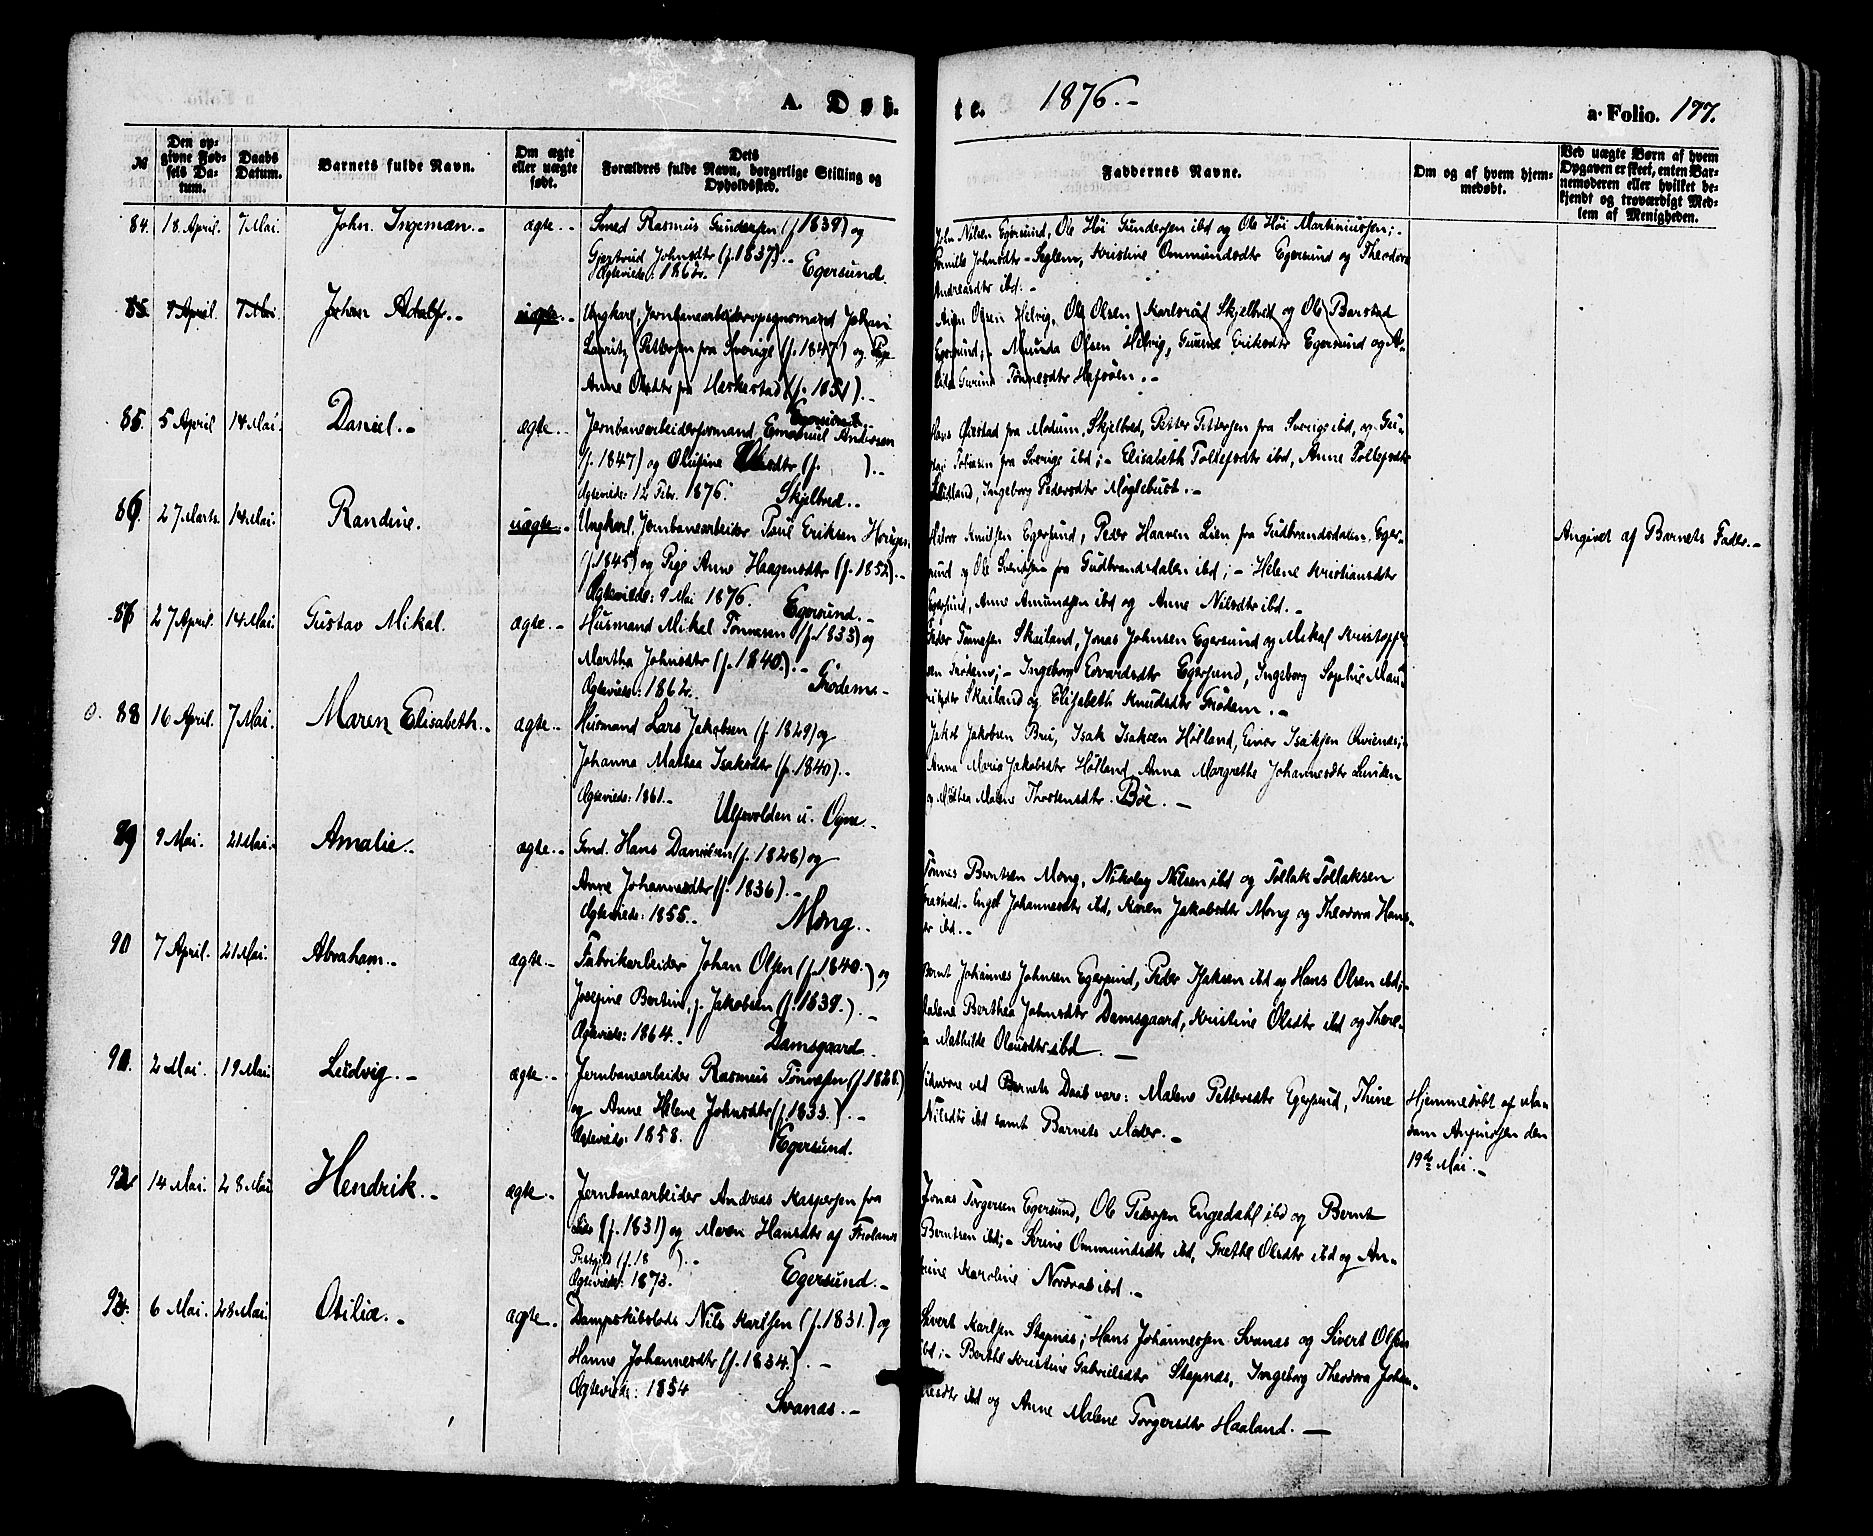 A. Døb-
te.
1876.-
a. Folio. 177.
№
Den op-
givne Fød-
sels Da-
tum.
Daabs
Datum.
Barnets fulde Navn.
Om ægte
eller uægte
født.
Dets
Forældres fulde Navn, borgerlige Stilling og
Opholdssted.
Faddernes Navne.
Om og af hvem hjem-
medøbt.
Ved uægte Børn af hvem
Opgaven er skeet, enten Bar-
nemoderen eller hvilket be-
kjendt og troværdigt Med-
lem af Menigheden.
84. 18. April. 7 Mai. John Ingeman.- ægte.- Smed Rasmus Gundersen (f. 1839) og
Gjertrud Johnsdtr (f. 1837).-
Ægteviede: 1862. Egersund.
John Nilsen Egersund, Ole Høi Gundersen ibd og Ole Høi Martiniussen;-
Pernille Johnsdtr Seglem, Kristine Ommundsdtr Egersund og Theodora
Andreasdtr ibd.-
85. 9 April. 7 Mai. Johan Adolf.- uægte.- Ungkarl, Jernbanearbeider Johan
Lauritz Pettersen fra Sverige (f. 1847) og Pige
Anne Olsdtr fra Heskestad (f. 1851).-
Egersund.
Olsen Helvig, Ole Olsen Skjelbred og Ole Barstad
Egersund;- Amunda Olsen Helvig, Eriksdtr Egersund og
Tønnesdtr Hafsøen.-
85. 5 April 14 Mai. Daniel.- ægte.- Jernbanearbeiderformand Emanuel Andersen
(f. 1847) og Olufine Olsdtr (f. ).-
Ægteviede: 12 Febr. 1876. Skjelbred.-
Hans Øxestad fra Modum, Skjelbred, Petter Pettersen fra Sverige ibd, og Gu-
fra Sverige ibd;- Elisabeth Tollefsdtr ibd, Anne Tollefsdtr
Ingeborg Pedersdtr Møglebust.-
86. 27 Marts. 14 Mai. Randine. uægte.- Ungkarl, Jernbanearbeider Paul Eriksen
(f. 1845) og Pige Anne Haagensdtr (f. 1852).-
Ægteviede: 9 Mai 1876. Egersund.-
Knudsen Egersund, Peder Haaven Lien fra Gudbrandsdalen, Eger-
sund og Ole Svendsen fra Gudbrandsdalen ibd;- Helene Kristiansdtr
Egersund, Anne Amundsen ibd og Anne Nilsdtr ibd.-
Angivet af Barnets Fader.-
87 27 April. 14 Mai. Gustav Mikal. ægte.- Husmand Mikal Tønnesen (f. 1833) og
Martha Johnsdtr (f. 1840).-
Ægteviede: 1862. Grødem.-
Peder Tønnesen Skailand, Jonas Johnsen Egersund og Mikal Kristoffer-
sen;- Ingeborg Edvardsdtr Egersund, Ingeborg Sophie Mau-
ritzdtr Skailand og Elisabeth Knudsdtr Grødem.-
o. 88 16 April. 7 Mai. Maren Elisabeth.- ægte.- Husmand Lars Jakobsen (f. 1829) og
Johanna Mathea Isaksdtr (f. 1840).-
Ægteviede: 1861.- Ulfsvolden u. Ogne.-
Jakob Jakobsen Bru, Isak Isaksen Hølland, Einar Isaksen
Anna Maria Jakobsdtr Hølland, Anna Margrethe Johannesdtr
og Mathea Malene Thorstensdtr Bøe.-
89 9 Mai. 21 Mai.- Amalie.- ægte.- Gmd. Hans Danielsen (f. 1828) og
Anne Johannesdtr (f. 1836).-
Ægteviede: 1855.- Mong.-
Tønnes Berntsen Mong, Nikolay Nilsen ibd og Tollak Tollaksen
Engel Johannesdtr ibd, Karen Jakobsdtr Mong og Theodora Hans-
dtr ibd.-
90 7 April. 21 Mai. Abraham.- ægte.- Fabrikarbeider Johan Olsen (f. 1840.) og
Josefine Bertine f. Jakobsen (f. 1839.).-
Ægteviede: 1864.- Damsgaard.-
Bernt Johannes Johnsen Egersund, Peder Isaksen ibd og Hans Olsen ibd;-
Malene Berthea Johnsdtr Damsgaard, Kristine Olsdtr ibd og There-
se Mathilde Olausdtr ibd.-
91. 2 Mai. 19 Mai Ludvig.- ægte.- Jernbanearbeider Rasmus Tønnesen (f. 1828.)
og Anne Helene Johnsdtr (f. 1833.).-
Ægteviede: 1858. Egersund.
Vidner ved Barnets Daab vare: Malene Pettersdtr Egersund, Thine
Nilsdtr ibd samt Barnets Moder.-
Hjemmedøbt af Ma-
dam Asginosen den
19de Mai.-
92 14 Mai. 28 Mai Hendrik.- ægte.- Jernbanearbeider Andreas Kaspersen fra
Lier (f. 1831) og Maren Hansdtr af Fiolands
Prstgjld (f. 18 ).-
Ægteviede: 1873. Egersund.-
Jonas Torgersen Egersund, Ole Pedersen Engedahl ibd og Bernt
Berntsen ibd;- Serine Ommundsdtr ibd, Grethe Olsdtr ibd og An-
drine Karoline Nordraab ibd.-
93. 6 Mai. 28 Mai. Otilia.- ægte.- Dampskibslods Nils Karlsen (f. 1831.) og
Hanne Johannesdtr (f. 1834.).-
Ægteviede: 1854 Svanæs.-
Sivert Karlsen Stapnæs, Hans Johannessen Svanæs og Sivert Olsen
ibd;- Berthe Kristine Gabrielsdtr Stapnæs, Ingeborg Theodora Johan-
nesdtr ibd og Anne Malene Torgersdtr Haaland.-